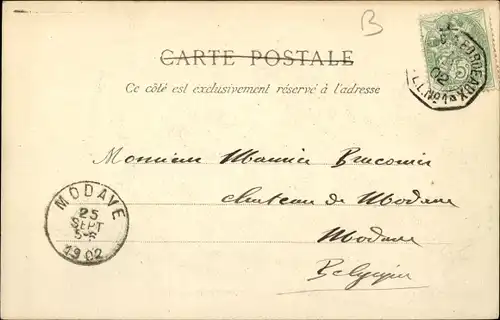 B
CARTE POSTALE
Ce côté est exclusivement réservé à l'adresse
BORDEAUX
02
Monsieur Maurice Braconier
chateau de Modave
Modave
Belgique
MODAVE
25
SEPT
5-6
1902